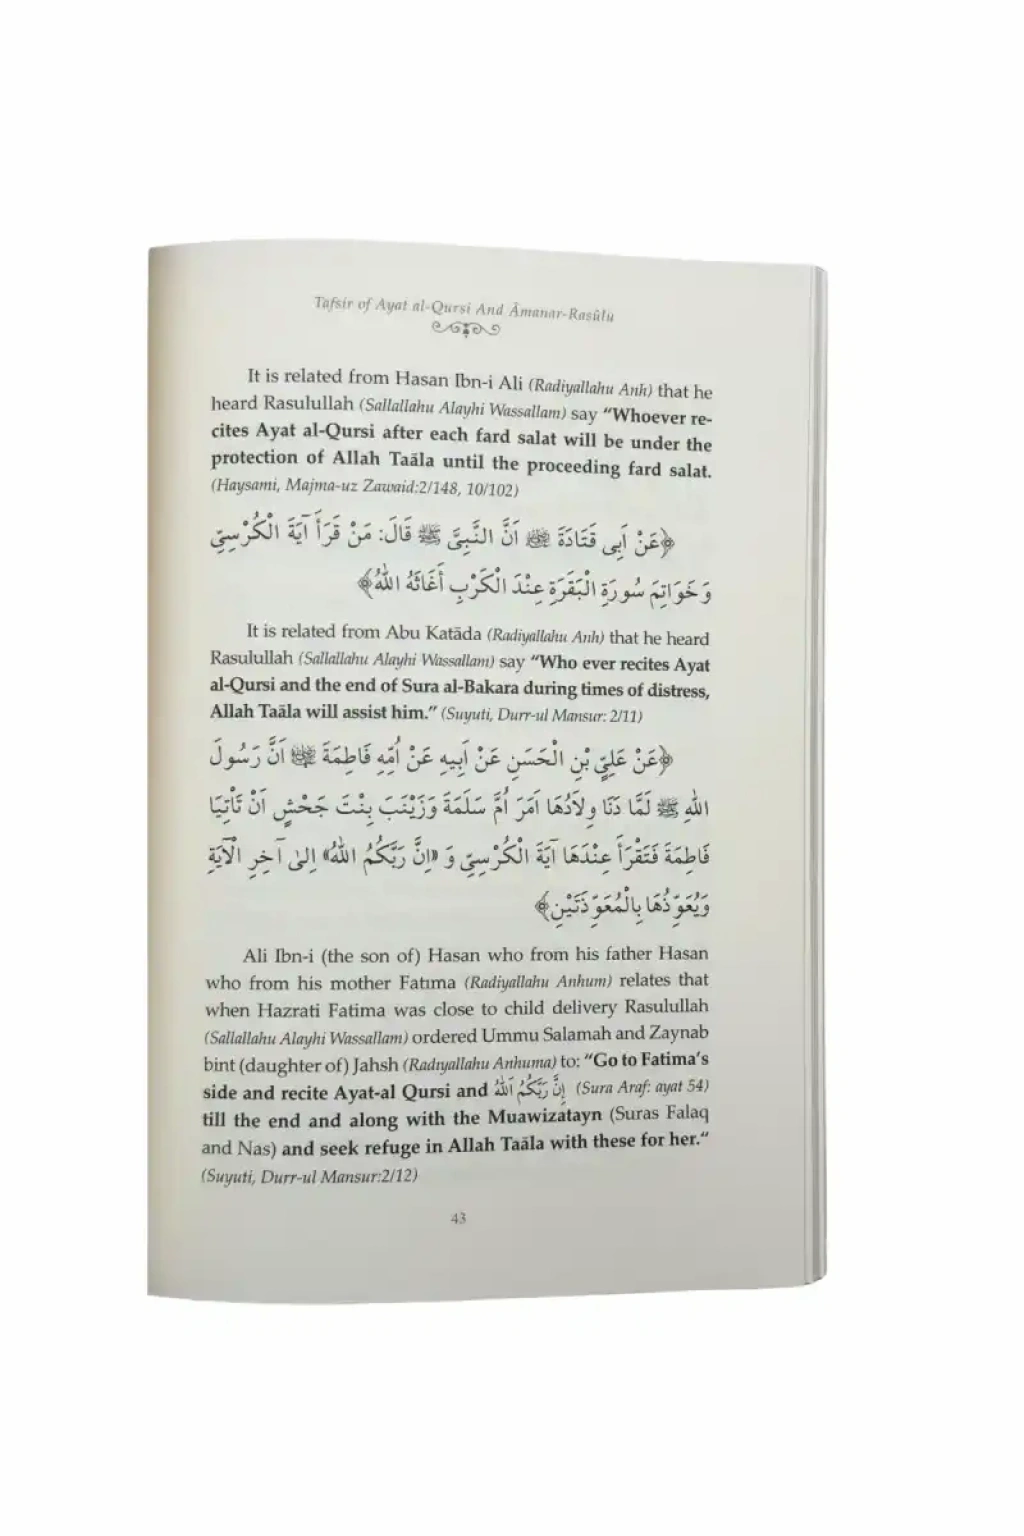 Tafsir of Ayat al-Qursi And Āmanar-Rasûlu
It is related from Hasan Ibn-i Ali (Radiyallahu Anh) that he
heard Rasulullah (Sallallahu Alayhi Wassallam) say “Whoever re-
cites Ayat al-Qursi after each fard salat will be under the
protection of Allah Taāla until the proceeding fard salat.
(Haysami, Majma-uz Zawaid:2/148, 10/102)
﴿عَنْ أَبِى قَتَادَةَ ﷺ اَنَّ النَّبِىَّ ﷺ قَالَ: مَنْ قَرَأَ آيَةَ الْكُرْسِىِّ
وَخَوَاتِمَ سُورَةِ الْبَقَرَةِ عِنْدَ الْكَرْبِ أَغَاثَهُ اللهُ﴾
It is related from Abu Katāda (Radiyallahu Anh) that he heard
Rasulullah (Sallallahu Alayhi Wassallam) say “Who ever recites Ayat
al-Qursi and the end of Sura al-Bakara during times of distress,
Allah Taāla will assist him.” (Suyuti, Durr-ul Mansur: 2/11)
﴿عَنْ عَلِىِّ بْنِ الْحَسَنِ عَنْ أَبِيهِ عَنْ اُمِّهِ فَاطِمَةَ ﷺ اَنَّ رَسُولَ
اللهِ ﷺ لَمَّا دَنَا وِلاَدُهَا اَمَرَ اُمَّ سَلَمَةَ وَزَيْنَبَ بِنْتَ جَحْشٍ اَنْ تَأْتِيَا
فَاطِمَةَ فَتَقْرَأَ عِنْدَهَا آيَةَ الْكُرْسِىِّ وَ «اِنَّ رَبَّكُمُ اللهُ» اِلىٰ آخِرِ الْآيَةِ
وَيُعَوِّذُهَا بِالْمُعَوِّذَتَيْنِ﴾
Ali Ibn-i (the son of) Hasan who from his father Hasan
who from his mother Fatıma (Radiyallahu Anhum) relates that
when Hazrati Fatima was close to child delivery Rasulullah
(Sallallahu Alayhi Wassallam) ordered Ummu Salamah and Zaynab
bint (daughter of) Jahsh (Radıyallahu Anhuma) to: “Go to Fatima’s
side and recite Ayat-al Qursi and إِنَّ رَبَّكُمُ اَللهُ (Sura Araf: ayat 54)
till the end and along with the Muawizatayn (Suras Falaq
and Nas) and seek refuge in Allah Taāla with these for her.“
(Suyuti, Durr-ul Mansur:2/12)
43